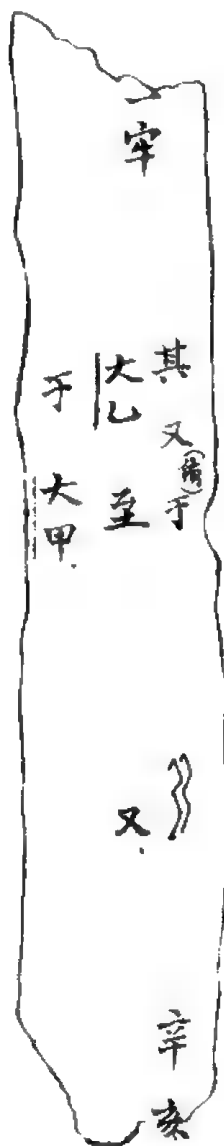 一牢
其又(侑)于
大乙至
于大甲
又
辛亥